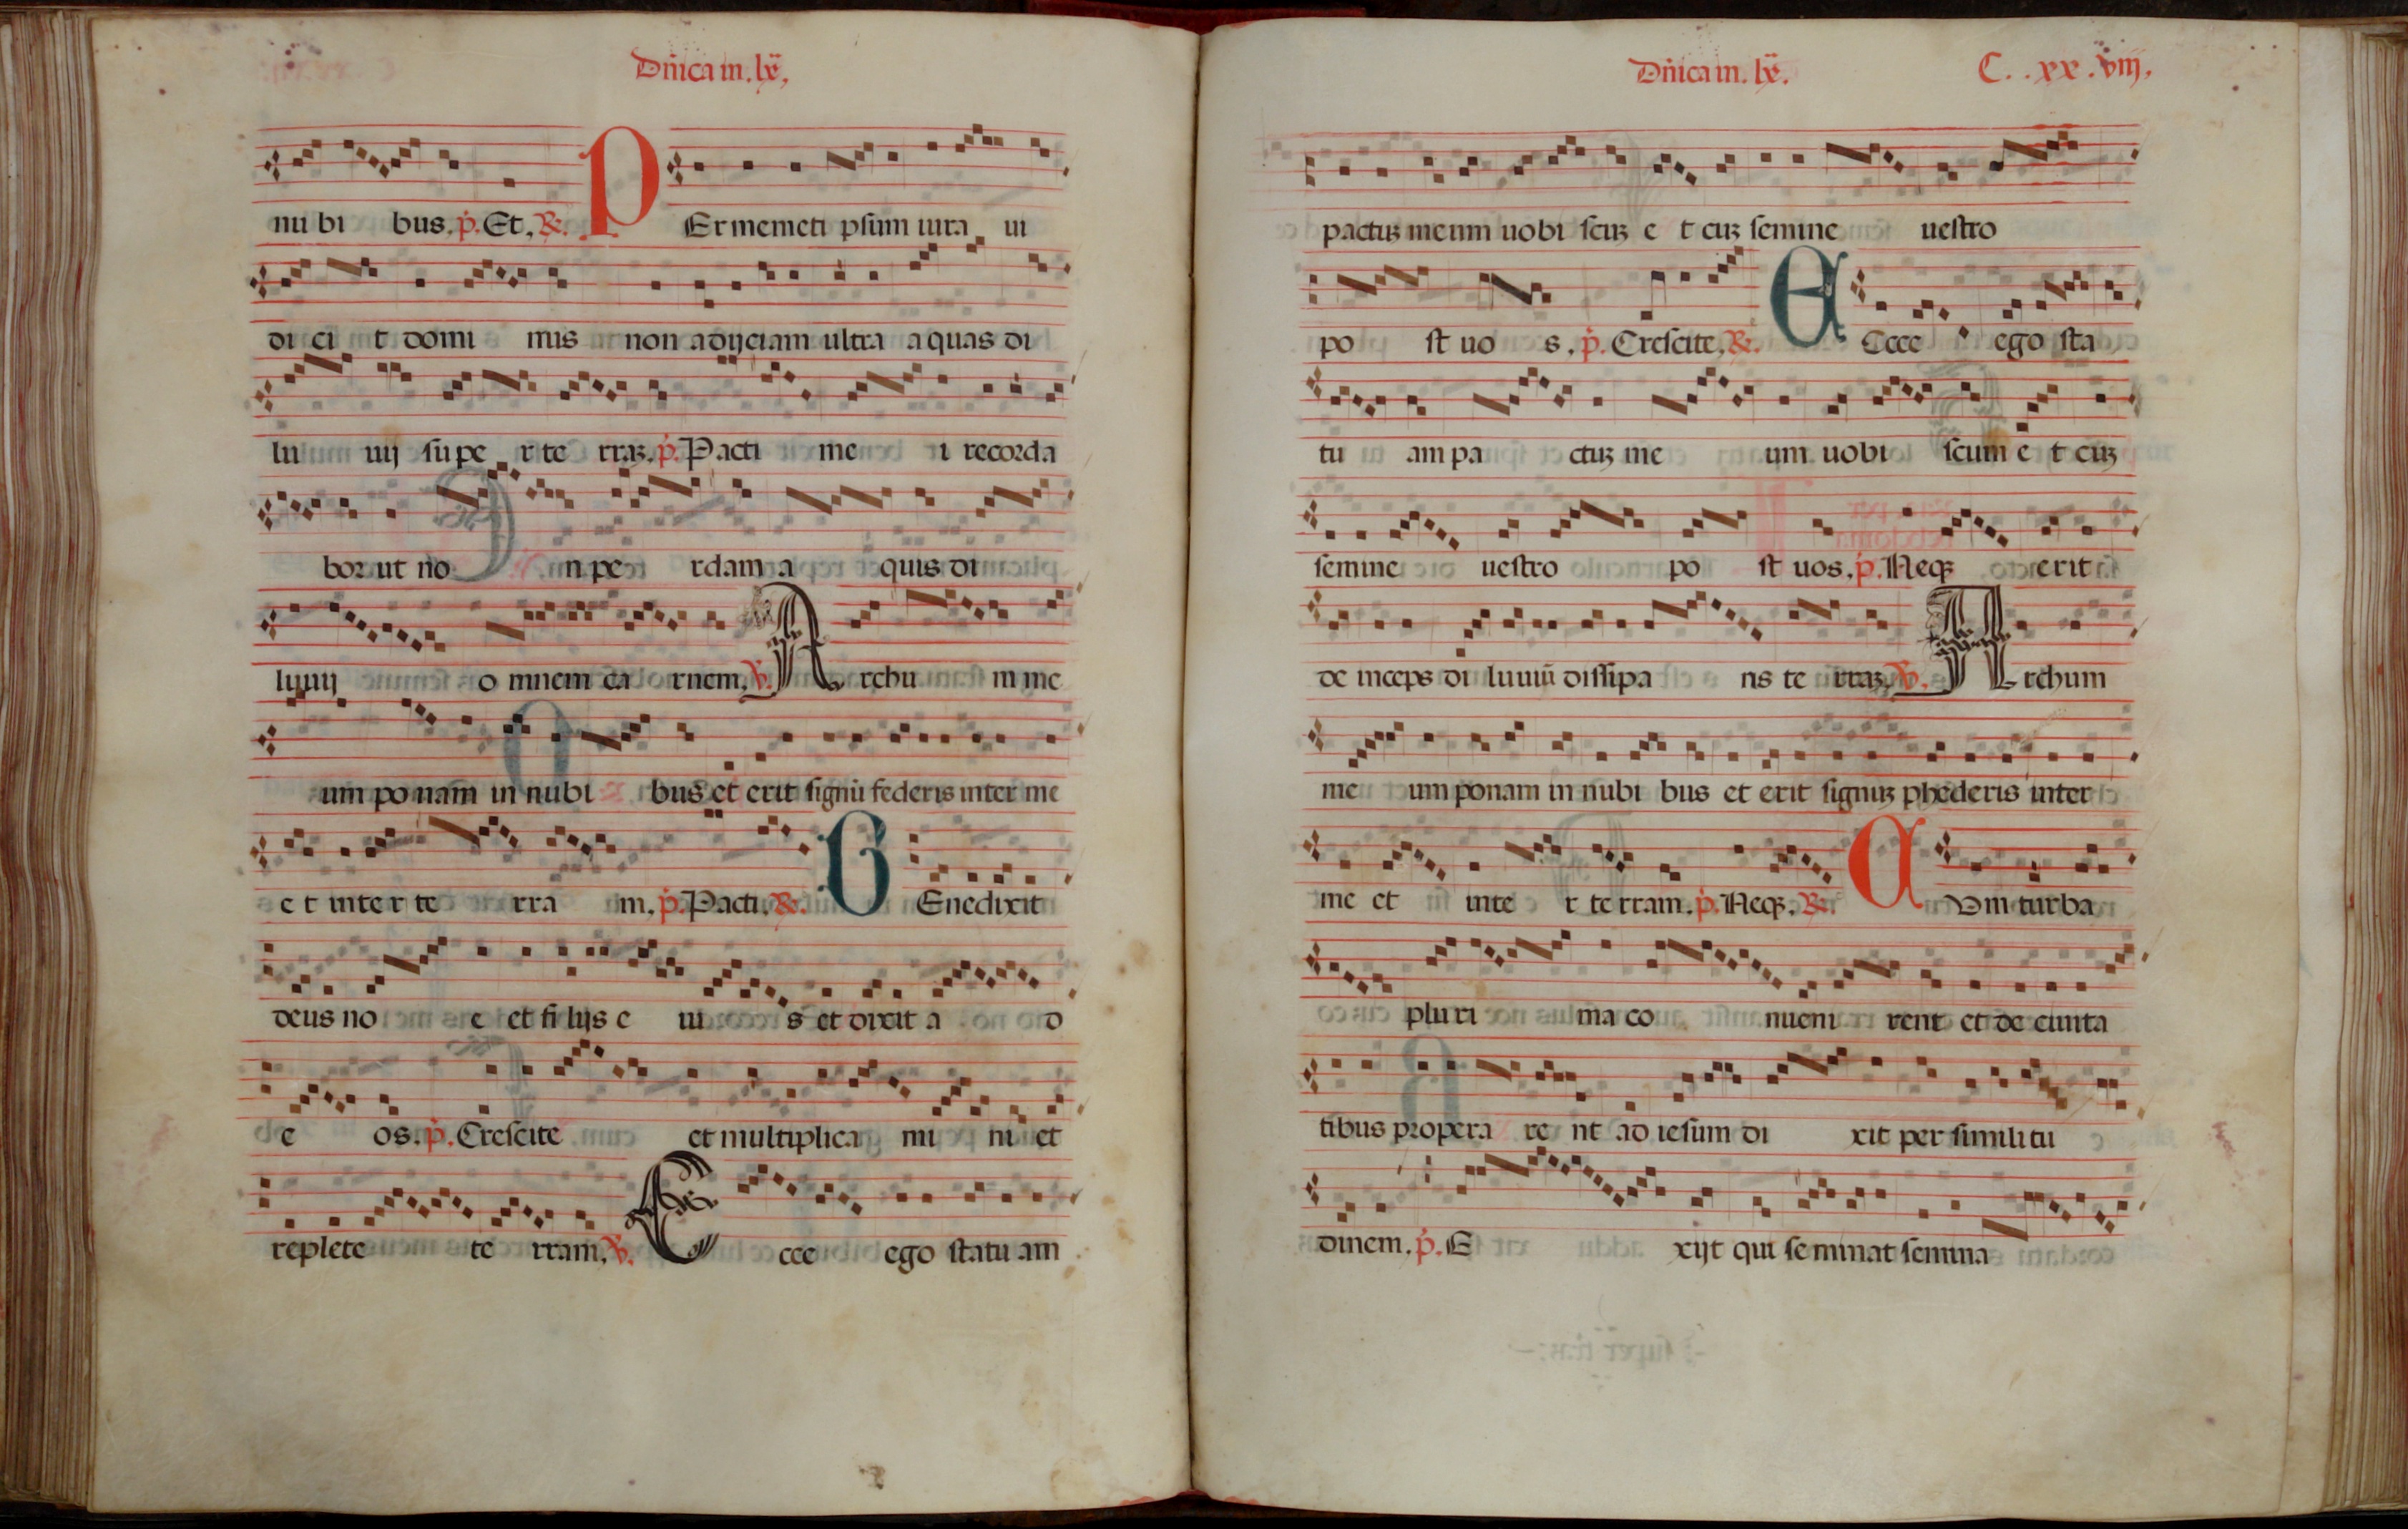 Dñica in. lx̃,
nu bi bus. p̃. Et. ℟.
P Er memeti psum iura ui
di ci t domi nus non adijciam ultra aquas di
lu uij supe r te rraʒ. p̃. Pacti me i recorda
bor ut no n pe rdam a quis di
luuij o mnem ca rnem. ℣. A rchu m me
um po nam in nubi bus et erit signũ federis inter me
e t inter te rra m. p̃. Pacti. ℟. B Enedixit
deus no e et filijs e iu s et dixit a d
e os. p̃. Crescite et multiplica mi ni et
replete te rram. ℣. E cce ego statu am
Dñica in. lx̃.
C. .xx. viij,
pactuʒ meum uobi scuʒ e t cuʒ semine uestro
po st uo s. p̃. Crescite. ℟. E Ccce ego sta
tu am pa ctuʒ me um uobi scum e t cuʒ
semine uestro po st uos. p̃. Neqʒ erit
de inceps di luuiũ dissipa ns te rraʒ. ℣. A rchum
me um ponam in nubi bus et erit signuʒ phederis inter
me et inte r terram. p̃. Neqʒ. ℟. C Vm turba
pluri ma co nueni rent et de ciuita
tibus propera re nt ad iesum di xit per simili tu
dinem. p̃. E xijt qui seminat semina